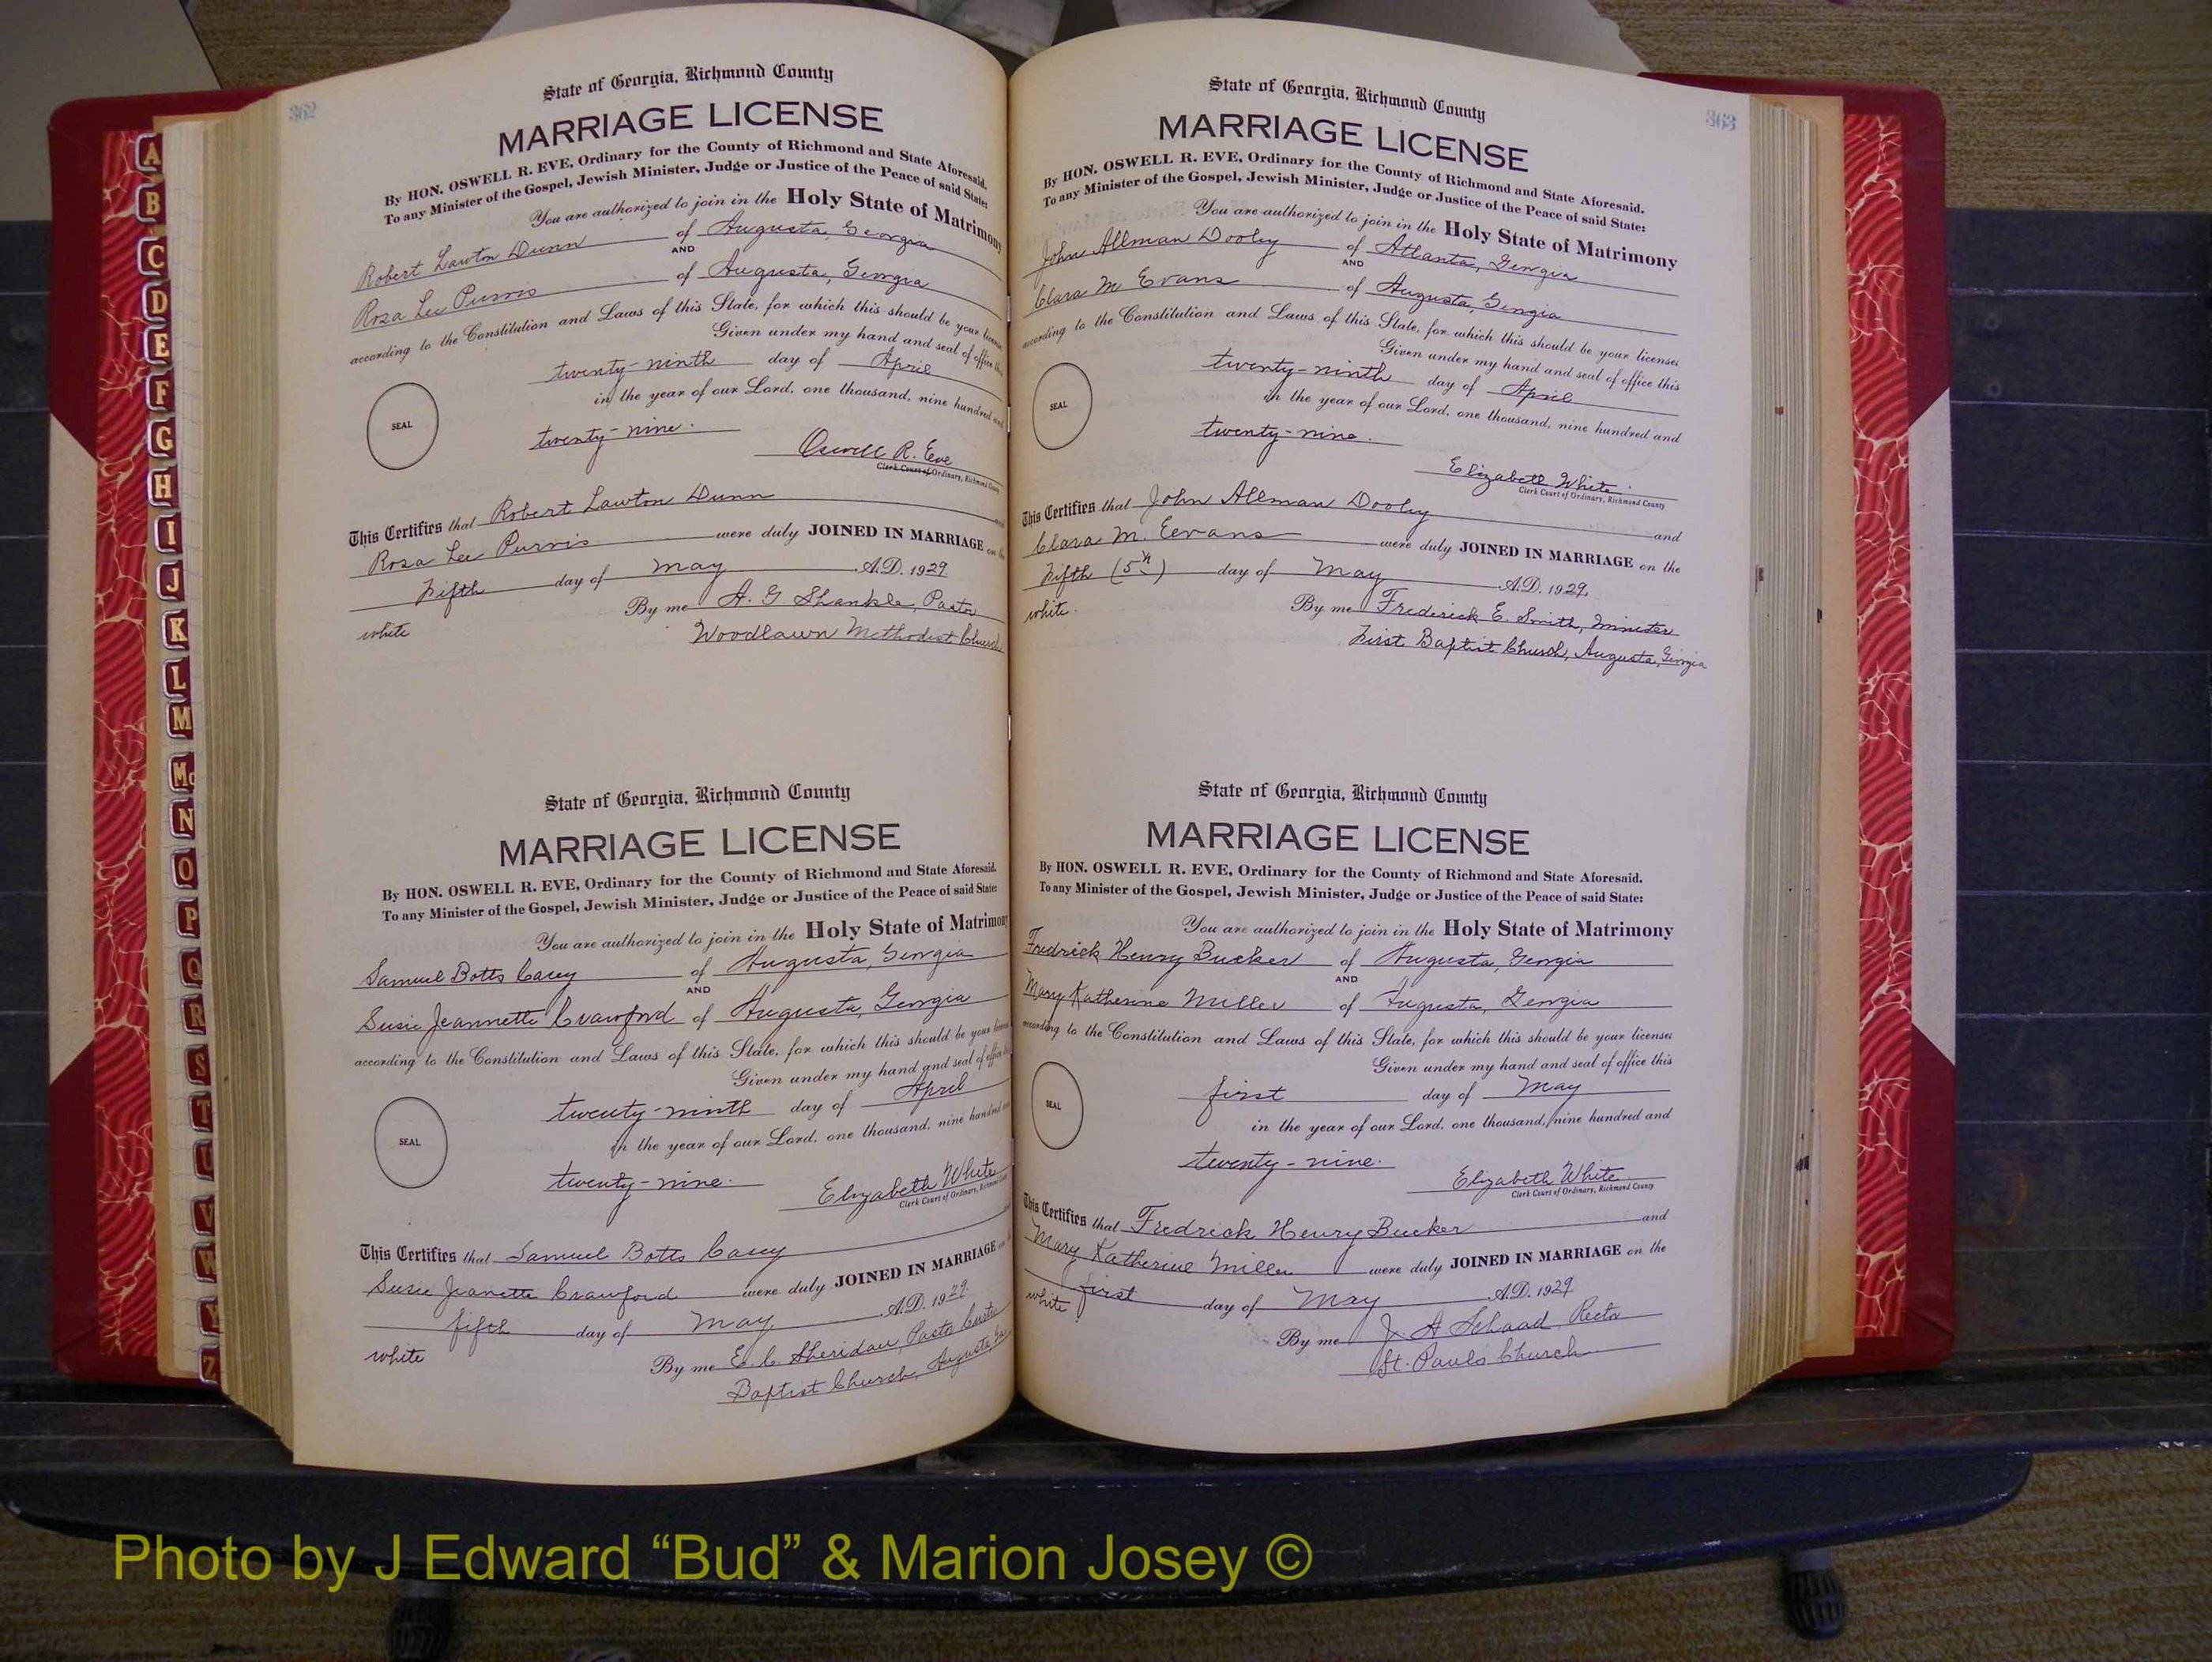 362
State of Georgia, Richmond County
MARRIAGE LICENSE
By HON. OSWELL R. EVE, Ordinary for the County of Richmond and State Aforesaid.
To any Minister of the Gospel, Jewish Minister, Judge or Justice of the Peace of said State:
You are authorized to join in the Holy State of Matrimony
Robert Lawton Dunn of Augusta, Georgia
AND
Rosa Lee Purvis of Augusta, Georgia
according to the Constitution and Laws of this State, for which this should be your license
Given under my hand and seal of office this
twenty-ninth day of April
in the year of our Lord, one thousand, nine hundred and
SEAL
twenty-nine.
Oswell R. Eve
Clerk Court of Ordinary, Richmond County
This Certifies that Robert Lawton Dunn and
Rosa Lee Purvis were duly JOINED IN MARRIAGE on the
Fifth day of May A.D. 1929
By me A. G Shankle, Pastor
white
Woodlawn Methodist Church
State of Georgia, Richmond County
MARRIAGE LICENSE
By HON. OSWELL R. EVE, Ordinary for the County of Richmond and State Aforesaid.
To any Minister of the Gospel, Jewish Minister, Judge or Justice of the Peace of said State:
You are authorized to join in the Holy State of Matrimony
Samuel Botts Casey of Augusta, Georgia
AND
Susie Jeannette Crawford of Augusta, Georgia
according to the Constitution and Laws of this State, for which this should be your license
Given under my hand and seal of office this
twenty-ninth day of April
in the year of our Lord, one thousand, nine hundred and
SEAL
twenty-nine.
Elizabeth White
Clerk Court of Ordinary, Richmond County
This Certifies that Samuel Botts Casey
Susie Jeanette Crawford were duly JOINED IN MARRIAGE on the
fifth day of May A.D. 1929.
white
By me E. C. Sheridan, Pastor
Baptist Church, Augusta, Ga
363
State of Georgia, Richmond County
MARRIAGE LICENSE
By HON. OSWELL R. EVE, Ordinary for the County of Richmond and State Aforesaid.
To any Minister of the Gospel, Jewish Minister, Judge or Justice of the Peace of said State:
You are authorized to join in the Holy State of Matrimony
John Allman Dooly of Atlanta, Georgia
AND
Clara M Evans of Augusta, Georgia
according to the Constitution and Laws of this State, for which this should be your licenses
Given under my hand and seal of office this
twenty-ninth day of April
in the year of our Lord, one thousand, nine hundred and
SEAL
twenty-nine.
Elizabeth White.
Clerk Court of Ordinary, Richmond County
This Certifies that John Allman Dooly and
Clara M. Eevans were duly JOINED IN MARRIAGE on the
Fifth (5th) day of May A.D. 1929.
white.
By me Frederick E. Smith, Minister
First Baptist Church, Augusta, Georgia
State of Georgia, Richmond County
MARRIAGE LICENSE
By HON. OSWELL R. EVE, Ordinary for the County of Richmond and State Aforesaid.
To any Minister of the Gospel, Jewish Minister, Judge or Justice of the Peace of said State:
You are authorized to join in the Holy State of Matrimony
Fredrick Henry Bucker of Augusta, Georgia
AND
Mary Katherine Miller of Augusta, Georgia
according to the Constitution and Laws of this State, for which this should be your licenses
Given under my hand and seal of office this
first day of May
SEAL
in the year of our Lord, one thousand, nine hundred and
twenty-nine.
Elizabeth White.
Clerk Court of Ordinary, Richmond County
This Certifies that Fredrick Henry Bucker and
Mary Katherine Miller were duly JOINED IN MARRIAGE on the
first day of May A.D. 1929
white
By me J. A Schaad, Rector
St. Pauls Church
A
B
C
D
E
F
G
H
I
J
K
L
M
Mc
N
O
P
Q
R
S
T
U
V
W
Y
Z
Photo by J Edward “Bud” & Marion Josey ©